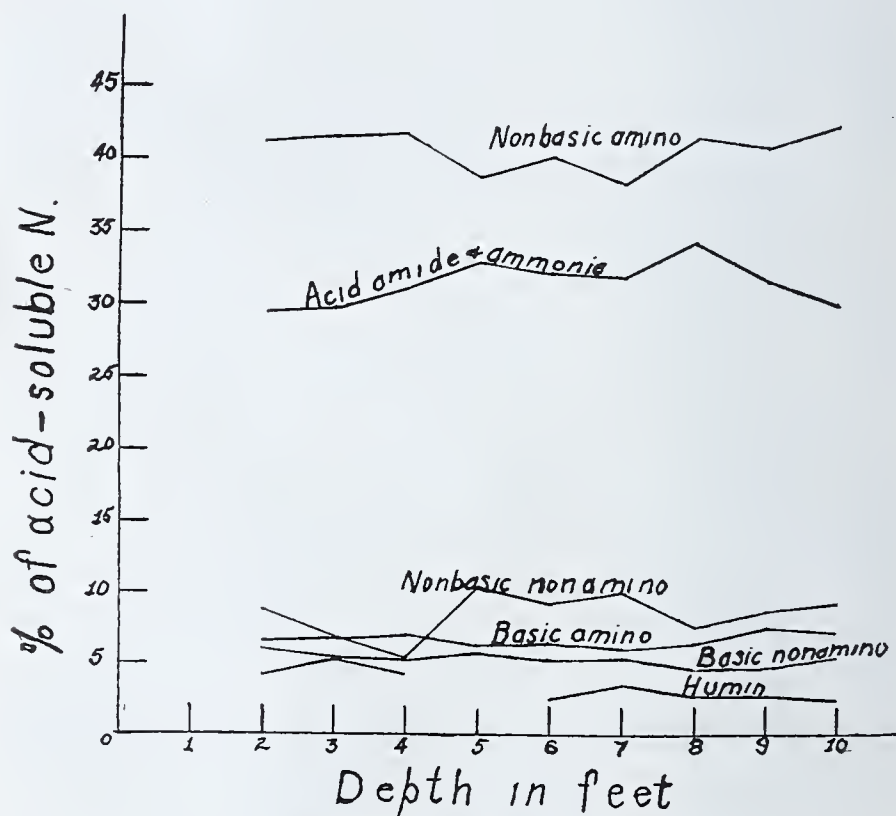 % of acid-soluble N.
45
40
35
30
25
20
15
10
5
0
1
2
3
4
5
6
7
8
9
10
Nonbasic amino
Acid amide + ammonia
Nonbasic nonamino
Basic amino
Basic nonamino
Humin
Depth in feet